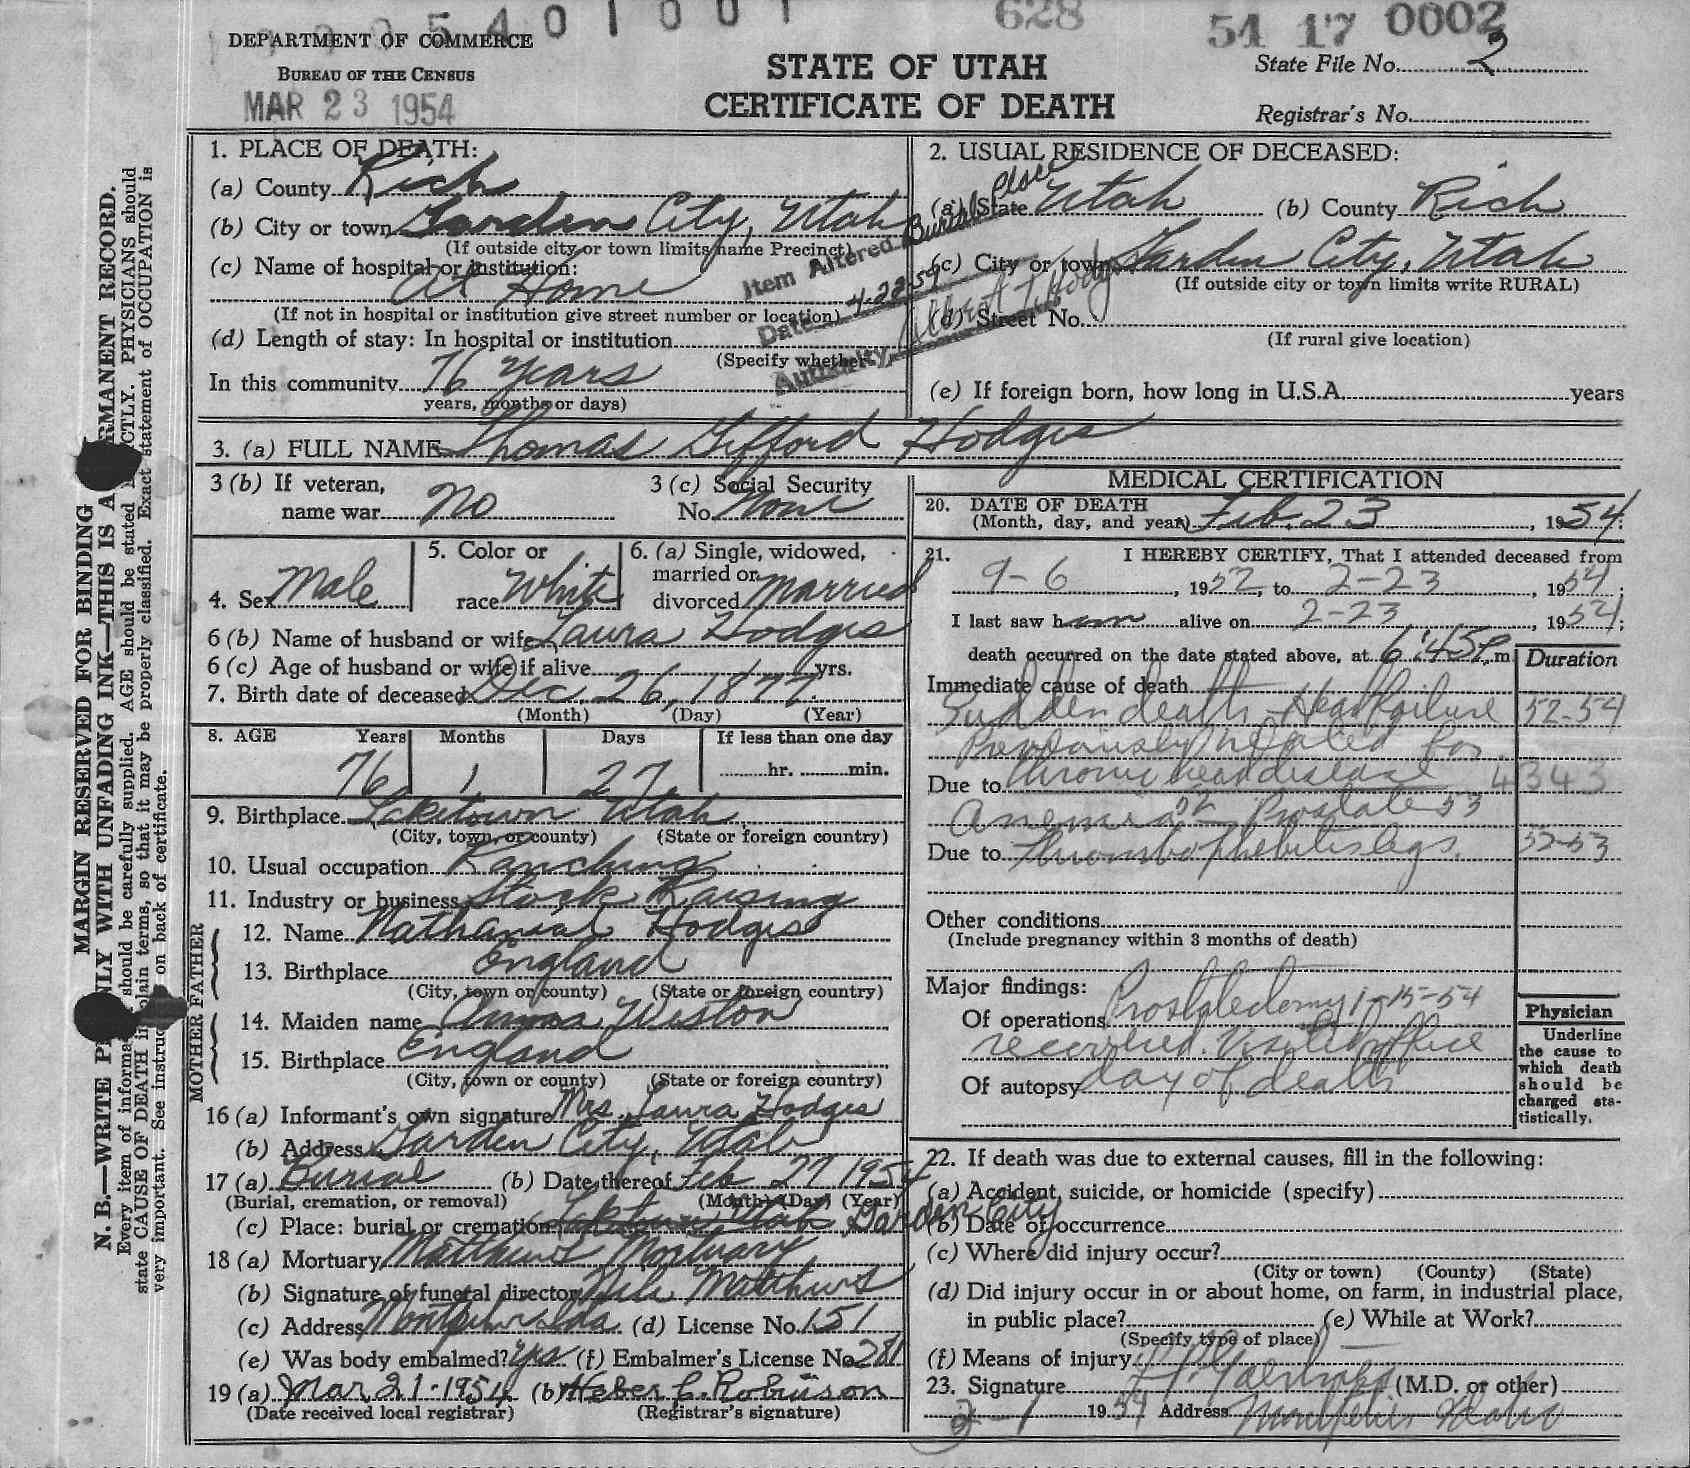 0 0 5 4 0 1 0 0 1
628
54 17 0002
DEPARTMENT OF COMMERCE
BUREAU OF THE CENSUS
MAR 23 1954
STATE OF UTAH
CERTIFICATE OF DEATH
State File No. 2
Registrar's No.
MARGIN RESERVED FOR BINDING
N. B.—WRITE PLAINLY WITH UNFADING INK—THIS IS A PERMANENT RECORD.
Every item of information should be carefully supplied. AGE should be stated EXACTLY. PHYSICIANS should
state CAUSE OF DEATH in plain terms, so that it may be properly classified. Exact statement of OCCUPATION is
very important. See instructions on back of certificate.
1. PLACE OF DEATH:
(a) County Rich
(b) City or town Garden City, Utah
(If outside city or town limits name Precinct)
(c) Name of hospital or institution:
At Home
(If not in hospital or institution give street number or location)
(d) Length of stay: In hospital or institution
(Specify whether
In this community 76 years
years, months or days)
Item Altered Burial Place
Date 4-22-59
Authority
2. USUAL RESIDENCE OF DECEASED:
(a) State Utah (b) County Rich
(c) City or town Garden City, Utah
(If outside city or town limits write RURAL)
(d) Street No.
(If rural give location)
(e) If foreign born, how long in U.S.A. years
3. (a) FULL NAME Thomas Gifford Hodges
3 (b) If veteran, name war No
3 (c) Social Security No. None
4. Sex Male
5. Color or race White
6. (a) Single, widowed, married or divorced Married
6 (b) Name of husband or wife Laura Hodges
6 (c) Age of husband or wife if alive yrs.
7. Birth date of deceased Dec. 26, 1877
(Month) (Day) (Year)
8. AGE Years Months Days If less than one day
76 1 27 hr. min.
9. Birthplace Laketown Utah
(City, town, or county) (State or foreign country)
10. Usual occupation Ranching
11. Industry or business Stock Raising
FATHER
12. Name Nathanial Hodges
13. Birthplace England
(City, town or county) (State or foreign country)
MOTHER
14. Maiden name Anna Weston
15. Birthplace England
(City, town or county) (State or foreign country)
16 (a) Informant's own signature Mrs. Laura Hodges
(b) Address Garden City, Utah
17 (a) Burial (b) Date thereof Feb 27 1954
(Burial, cremation, or removal) (Month) (Day) (Year)
(c) Place: burial or cremation Laketown Utah Garden City
18 (a) Mortuary Matthews Mortuary
(b) Signature of funeral director Nile Matthews
(c) Address Montpelier Ida. (d) License No. 151
(e) Was body embalmed? yes (f) Embalmer's License No. 281
19 (a) Mar 21-1954 (b) Heber C. Robinson
(Date received local registrar) (Registrar's signature)
MEDICAL CERTIFICATION
20. DATE OF DEATH
(Month, day, and year) Feb. 23, 1954
21. I HEREBY CERTIFY, That I attended deceased from
9-6, 1952, to 2-23, 1954;
I last saw him alive on 2-23, 1954;
death occurred on the date stated above, at 6:45 P.m.
Duration
Immediate cause of death
Sudden death - Heart failure 52-54
Previously treated for
Due to Chronic heart disease 4343
Anemia 52 - Prostate 53
Due to Thrombophebitis legs. 52-53
Other conditions
(Include pregnancy within 3 months of death)
Major findings:
Of operations Prostatectomy 1-15-54
recovered. Visited office
Of autopsy day of death
Physician
Underline
the cause to
which death
should be
charged sta-
tistically.
22. If death was due to external causes, fill in the following:
(a) Accident, suicide, or homicide (specify)
(b) Date of occurrence
(c) Where did injury occur?
(City or town) (County) (State)
(d) Did injury occur in or about home, on farm, in industrial place,
in public place? (e) While at Work?
(Specify type of place)
(f) Means of injury
23. Signature (M.D. or other)
3-1 1954 Address Montpelier Idaho